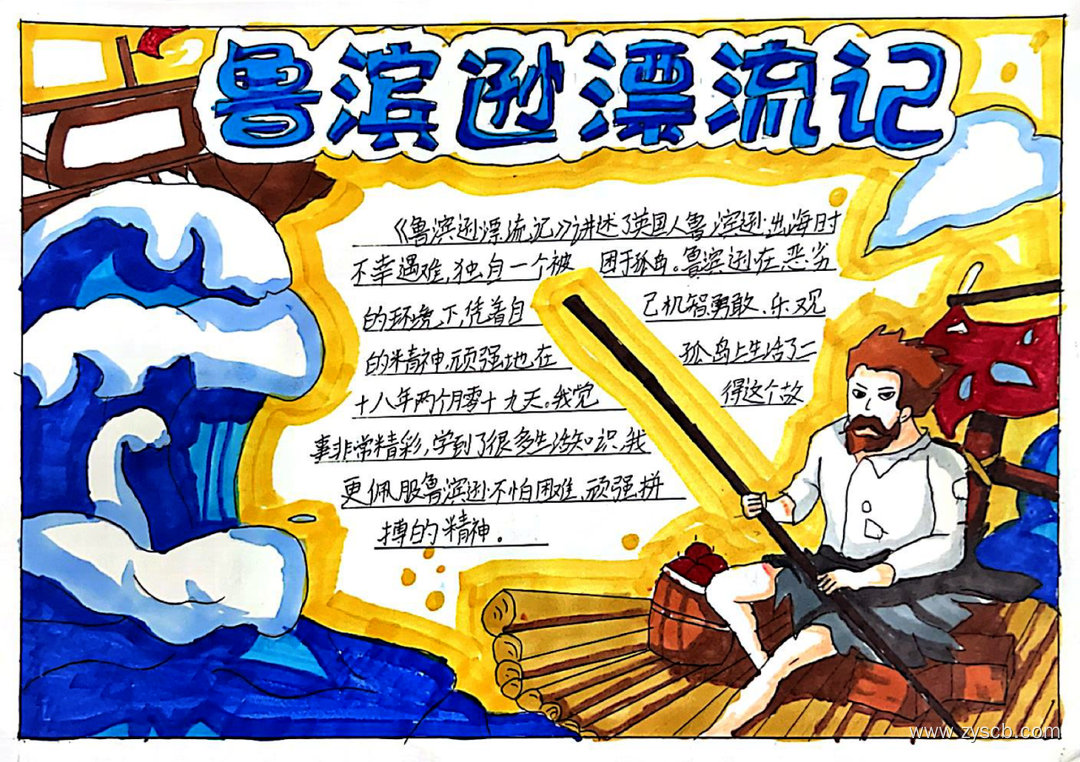 鲁滨逊漂流记
《鲁滨逊漂流记》讲述了英国人鲁滨逊出海时
不幸遇难,独自一个被 困于孤岛。鲁滨逊在恶劣
的环境下,凭着自 己机智勇敢、乐观
的精神,顽强地在 孤岛上生活了二
十八年两个月零十九天。我觉 得这个故
事非常精彩,学到了很多生活知识,我
更佩服鲁滨逊不怕困难、顽强拼
搏的精神。
www.zyscb.com